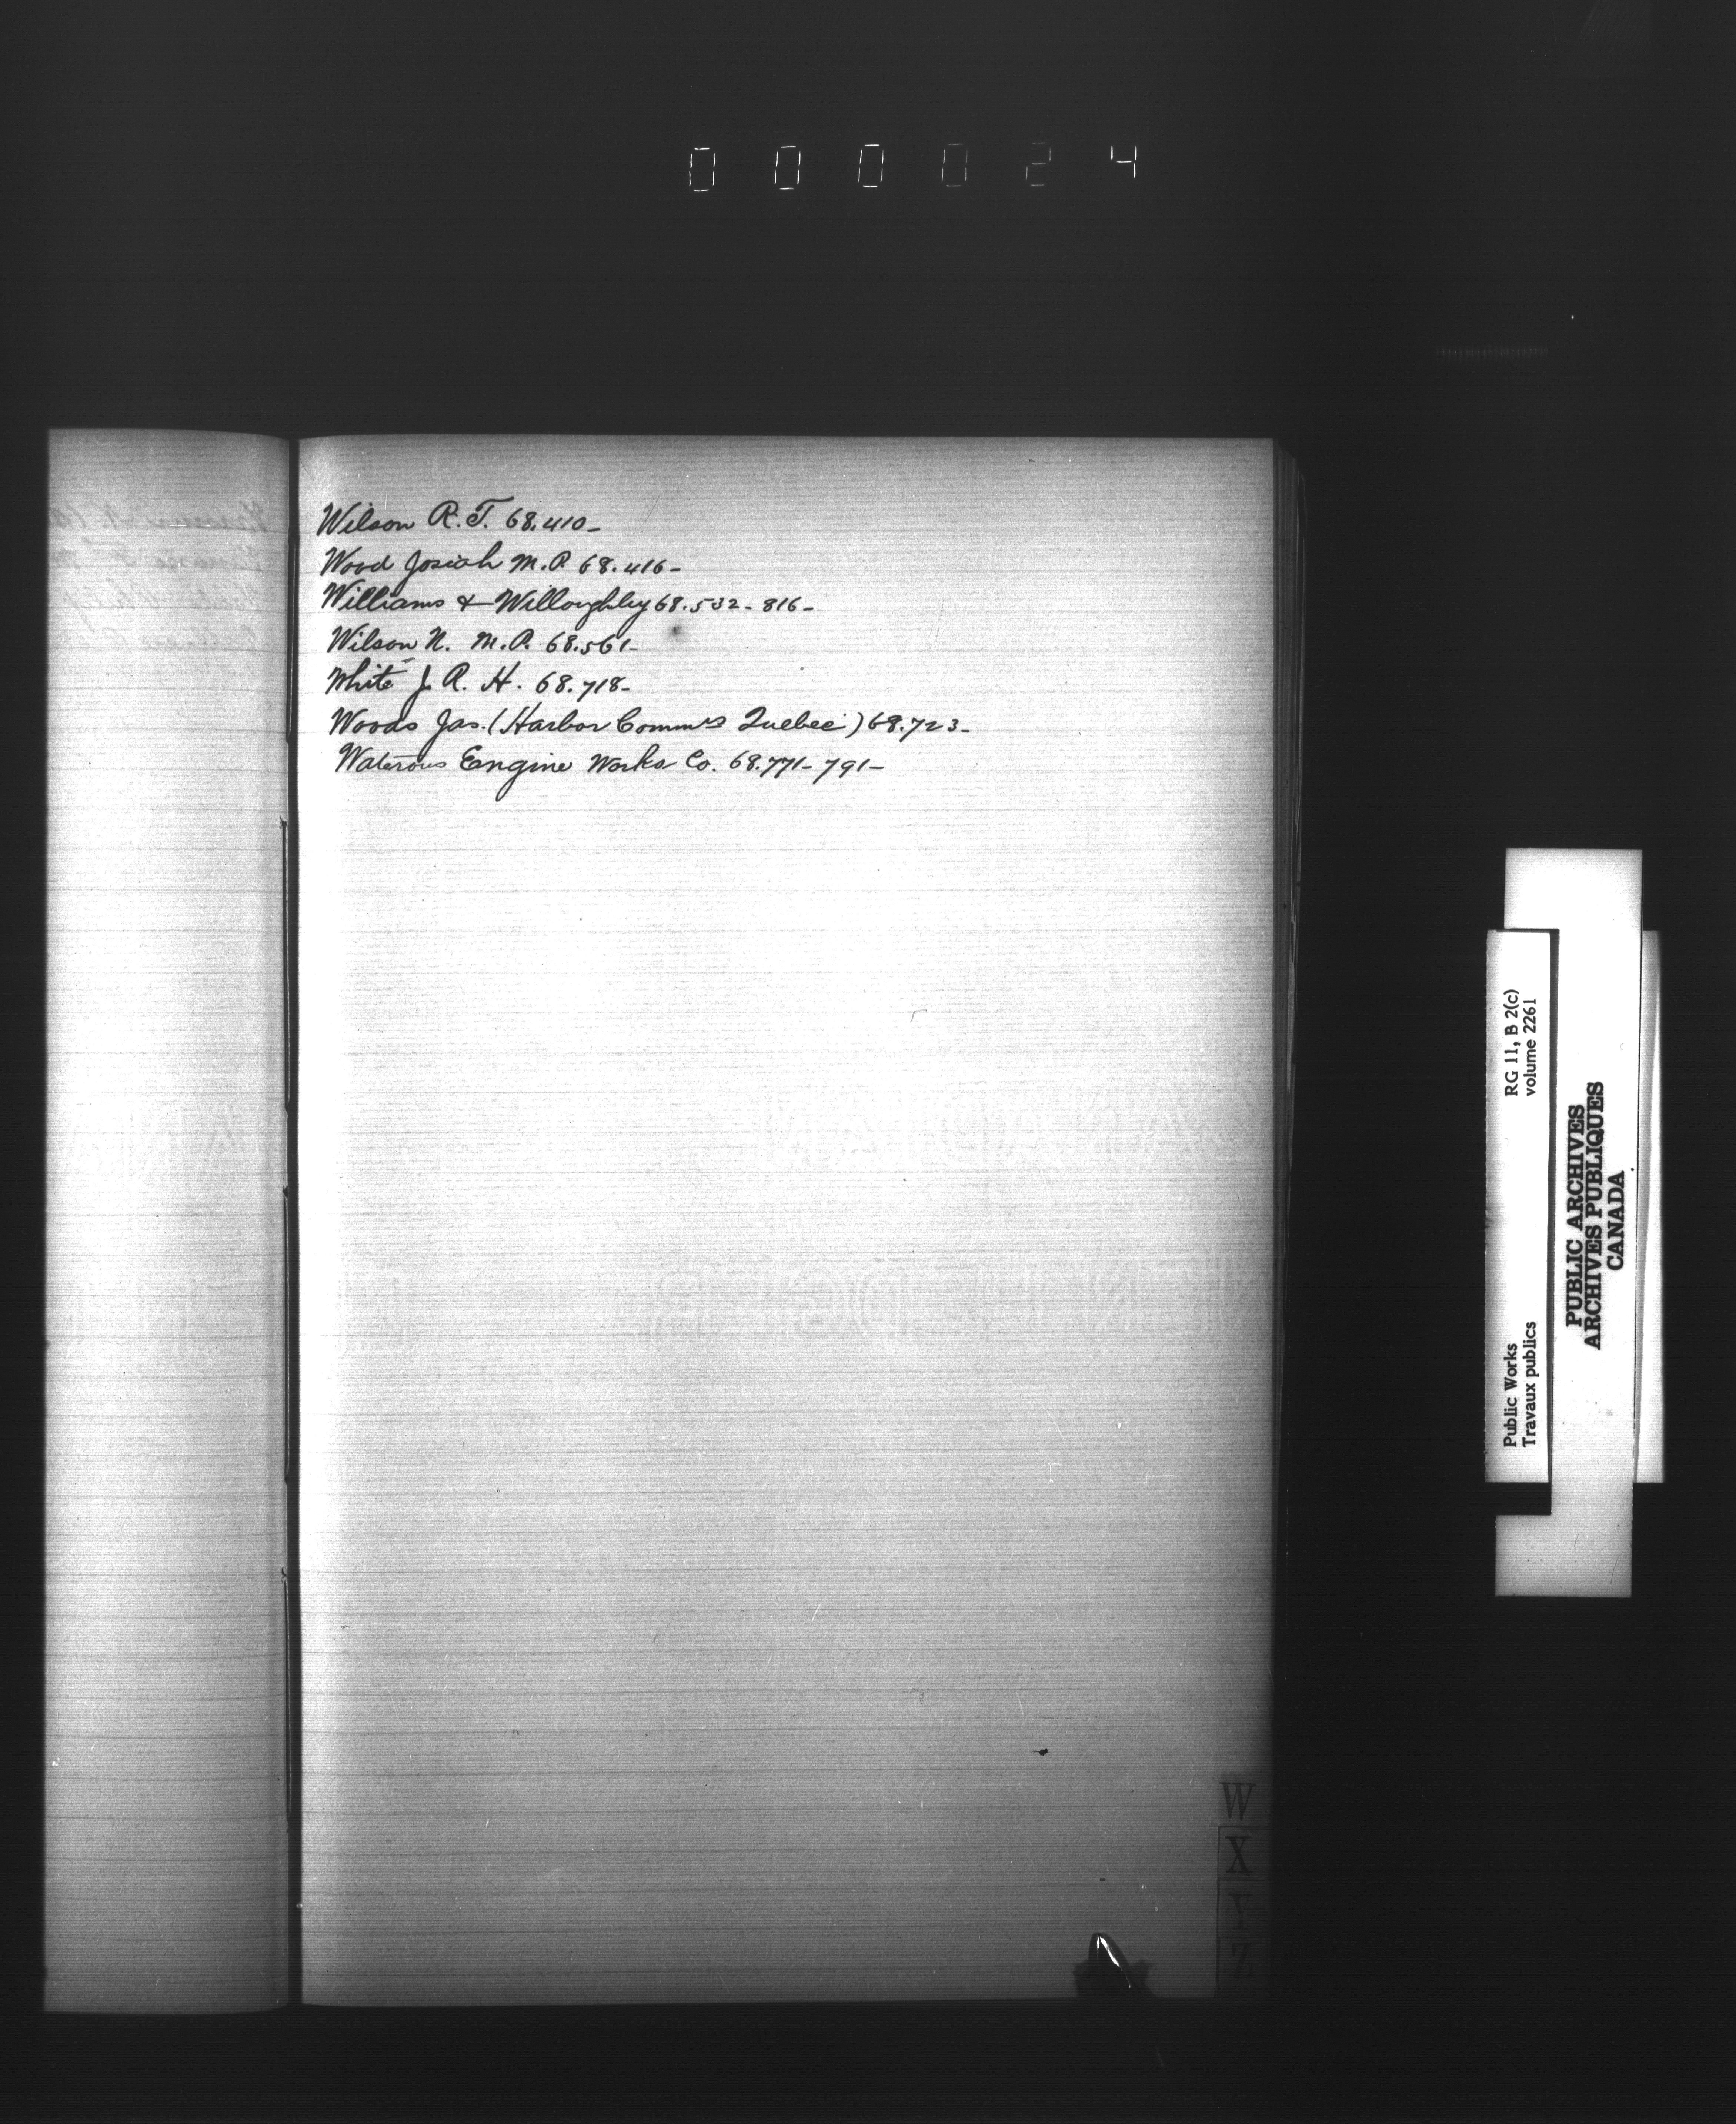 000024
Wilson R. T. 68.410-
Wood Josiah M.P. 68.416-
Williams & Willoughby 68.532-816-
Wilson N. M.P. 68.561-
White J. R. H. 68.718-
Woods Jas. (Harbor Commrs Quebec) 68.723-
Waterous Engine Works Co. 68.771-791-
W
X
Y
Z
Public Works
Travaux publics
RG 11, B 2(c)
volume 2261
PUBLIC ARCHIVES
ARCHIVES PUBLIQUES
CANADA